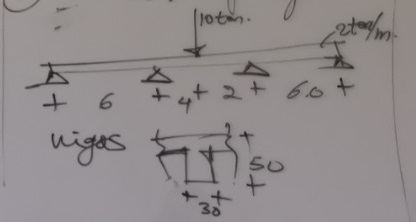 10 ton.
2 ton/m.
6 4 2 6.0
vigas
50
30